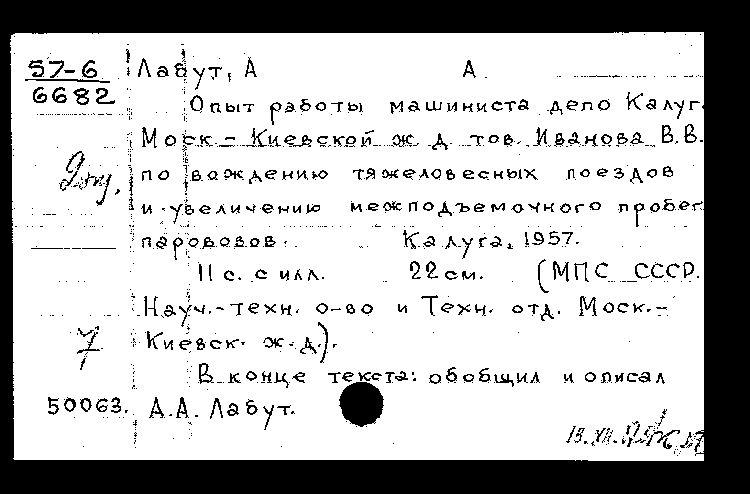 57-6
6682
Лабут, А А.
Опыт работы машиниста депо Калуг.
Моск.-Киевской ж д тов. Иванова В.В.
по вождению тяжеловесных поездов
и увеличению межподъемочного пробег
паровозов. Калуга, 1957.
11 с. с илл. 22 см. (МПС СССР.
Науч.-техн. о-во и Техн. отд. Моск.-
Киевск. ж.д.).
7
В конце текста: обобщил и описал
50063. А.А. Лабут.